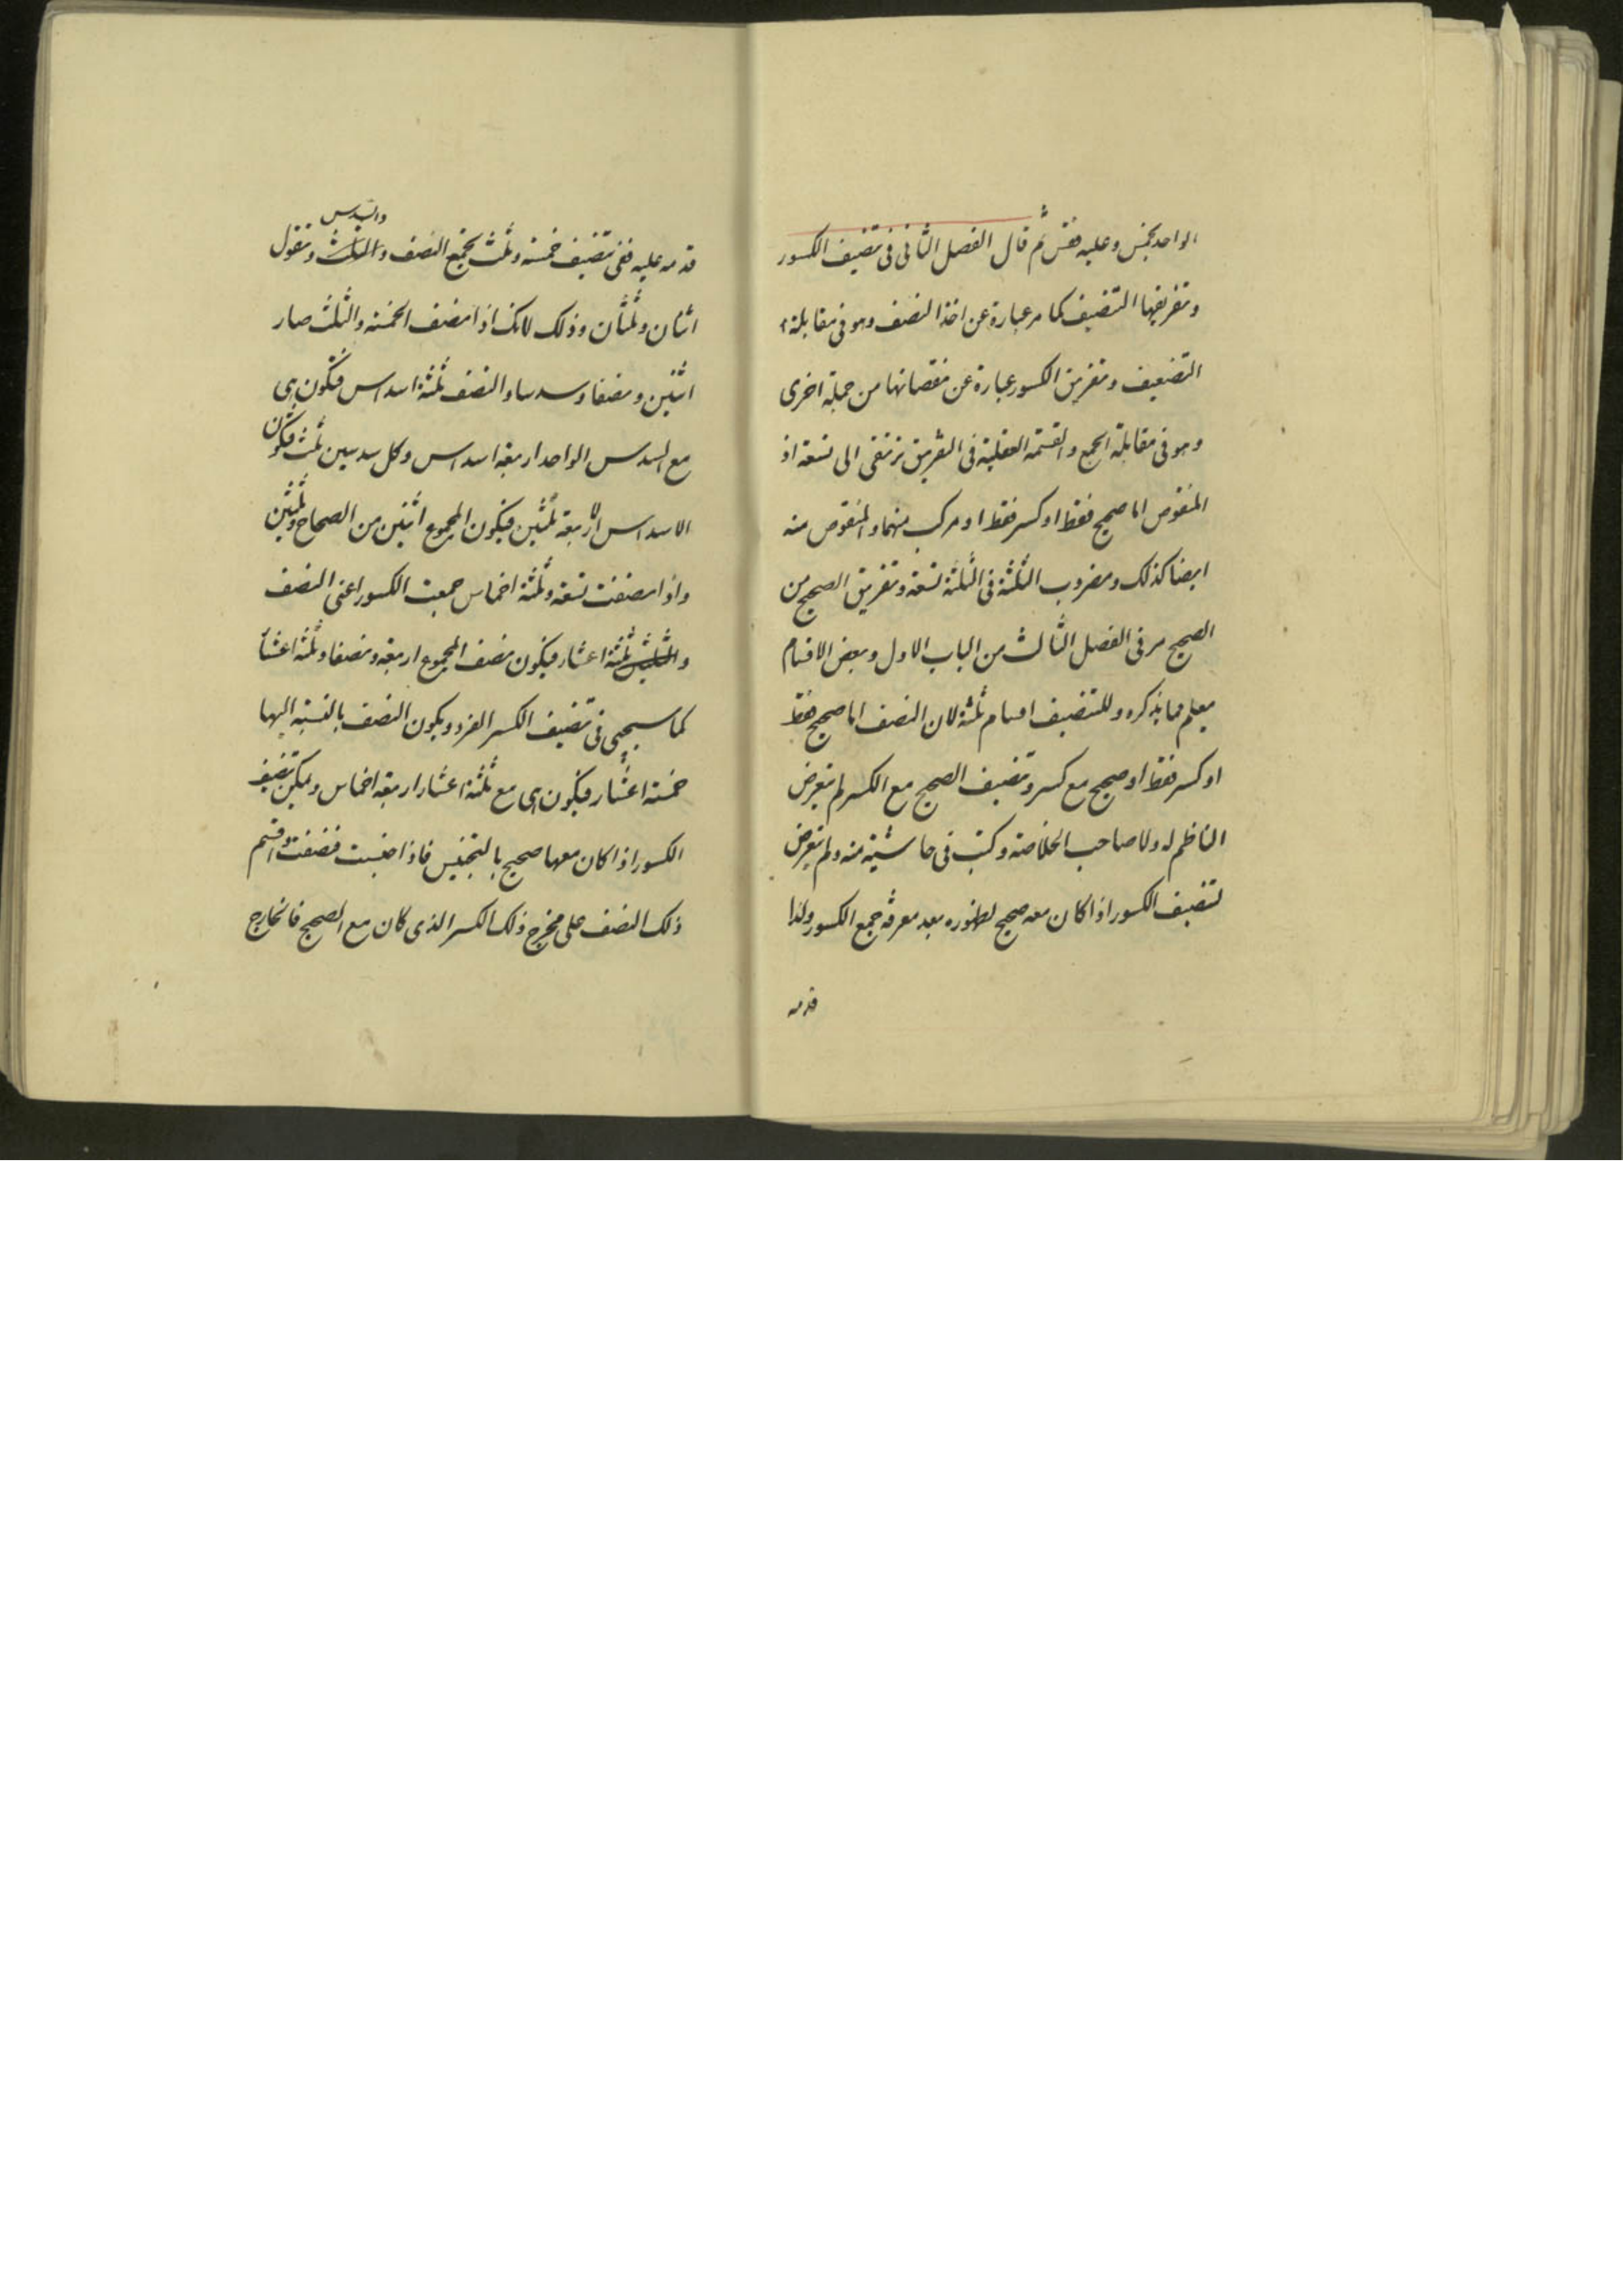 الواحد بخمس وعليه فقس ثم قال الفصل الثانى فى تنصيف الكسور
وتفريقها التنصيف كما مر عبارة عن اخذ النصف وهو فى مقابلة
التضعيف وتفريق الكسور عبارة عن نقصانها من جملة اخرى
وهو فى مقابلة الجمع والقسمة العقلية فى التفريق ترتقى الى تسعة اذ
المنقوص اما صحيح فقط او كسر فقط او مركب منهما والمنقوص منه
ايضا كذلك ومضروب الثلثة فى الثلثة تسعة وتفريق الصحيح من
الصحيح مر فى الفصل الثالث من الباب الاول وبعض الاقسام
يعلم مما يذكره وللتنصيف اقسام ثلثة لان النصف اما صحيح فقط
او كسر فقط او صحيح مع كسر وتنصيف الصحيح مع الكسر لم يتعرض
الناظم له ولا صاحب الخلاصة وكتب فى حاشية منه ولم يتعرض
لتنصيف الكسور اذا كان معه صحيح لظهوره بعد معرفة جمع الكسور ولذا
قدمه
والسدس
قدمه عليه ففى تنصيف خمسة وثلث يجمع النصف والثلث وتقول
اثنان وثلثان وذلك لانك اذا نصف الخمسة والثلث صار
اثنين ونصفا وسدسا والنصف ثلثة اسداس فتكون هى
مع السدس الواحد اربعة اسداس وكل سدسين ثلث فتكون
الاسداس الاربعة ثلثين فيكون المجموع اثنين من الصحاح وثلثين
واذا نصفت تسعة وثلثة اخماس جمعت الكسور اعنى النصف
و ثلثة اعشار فيكون نصف المجموع اربعة ونصفا وثلثة اعشار
كما سيجيى فى تنصيف الكسر الفرد ويكون النصف بالنسبة اليها
خمسة اعشار فيكون هى مع ثلثة اعشار اربعة اخماس ويمكن تنصيف
الكسور اذا كان معها صحيح بالتجنيس فاذا جنست فنصفت واقسم
ذلك النصف على مخرج ذلك الكسر الذى كان مع الصحيح فالخارج